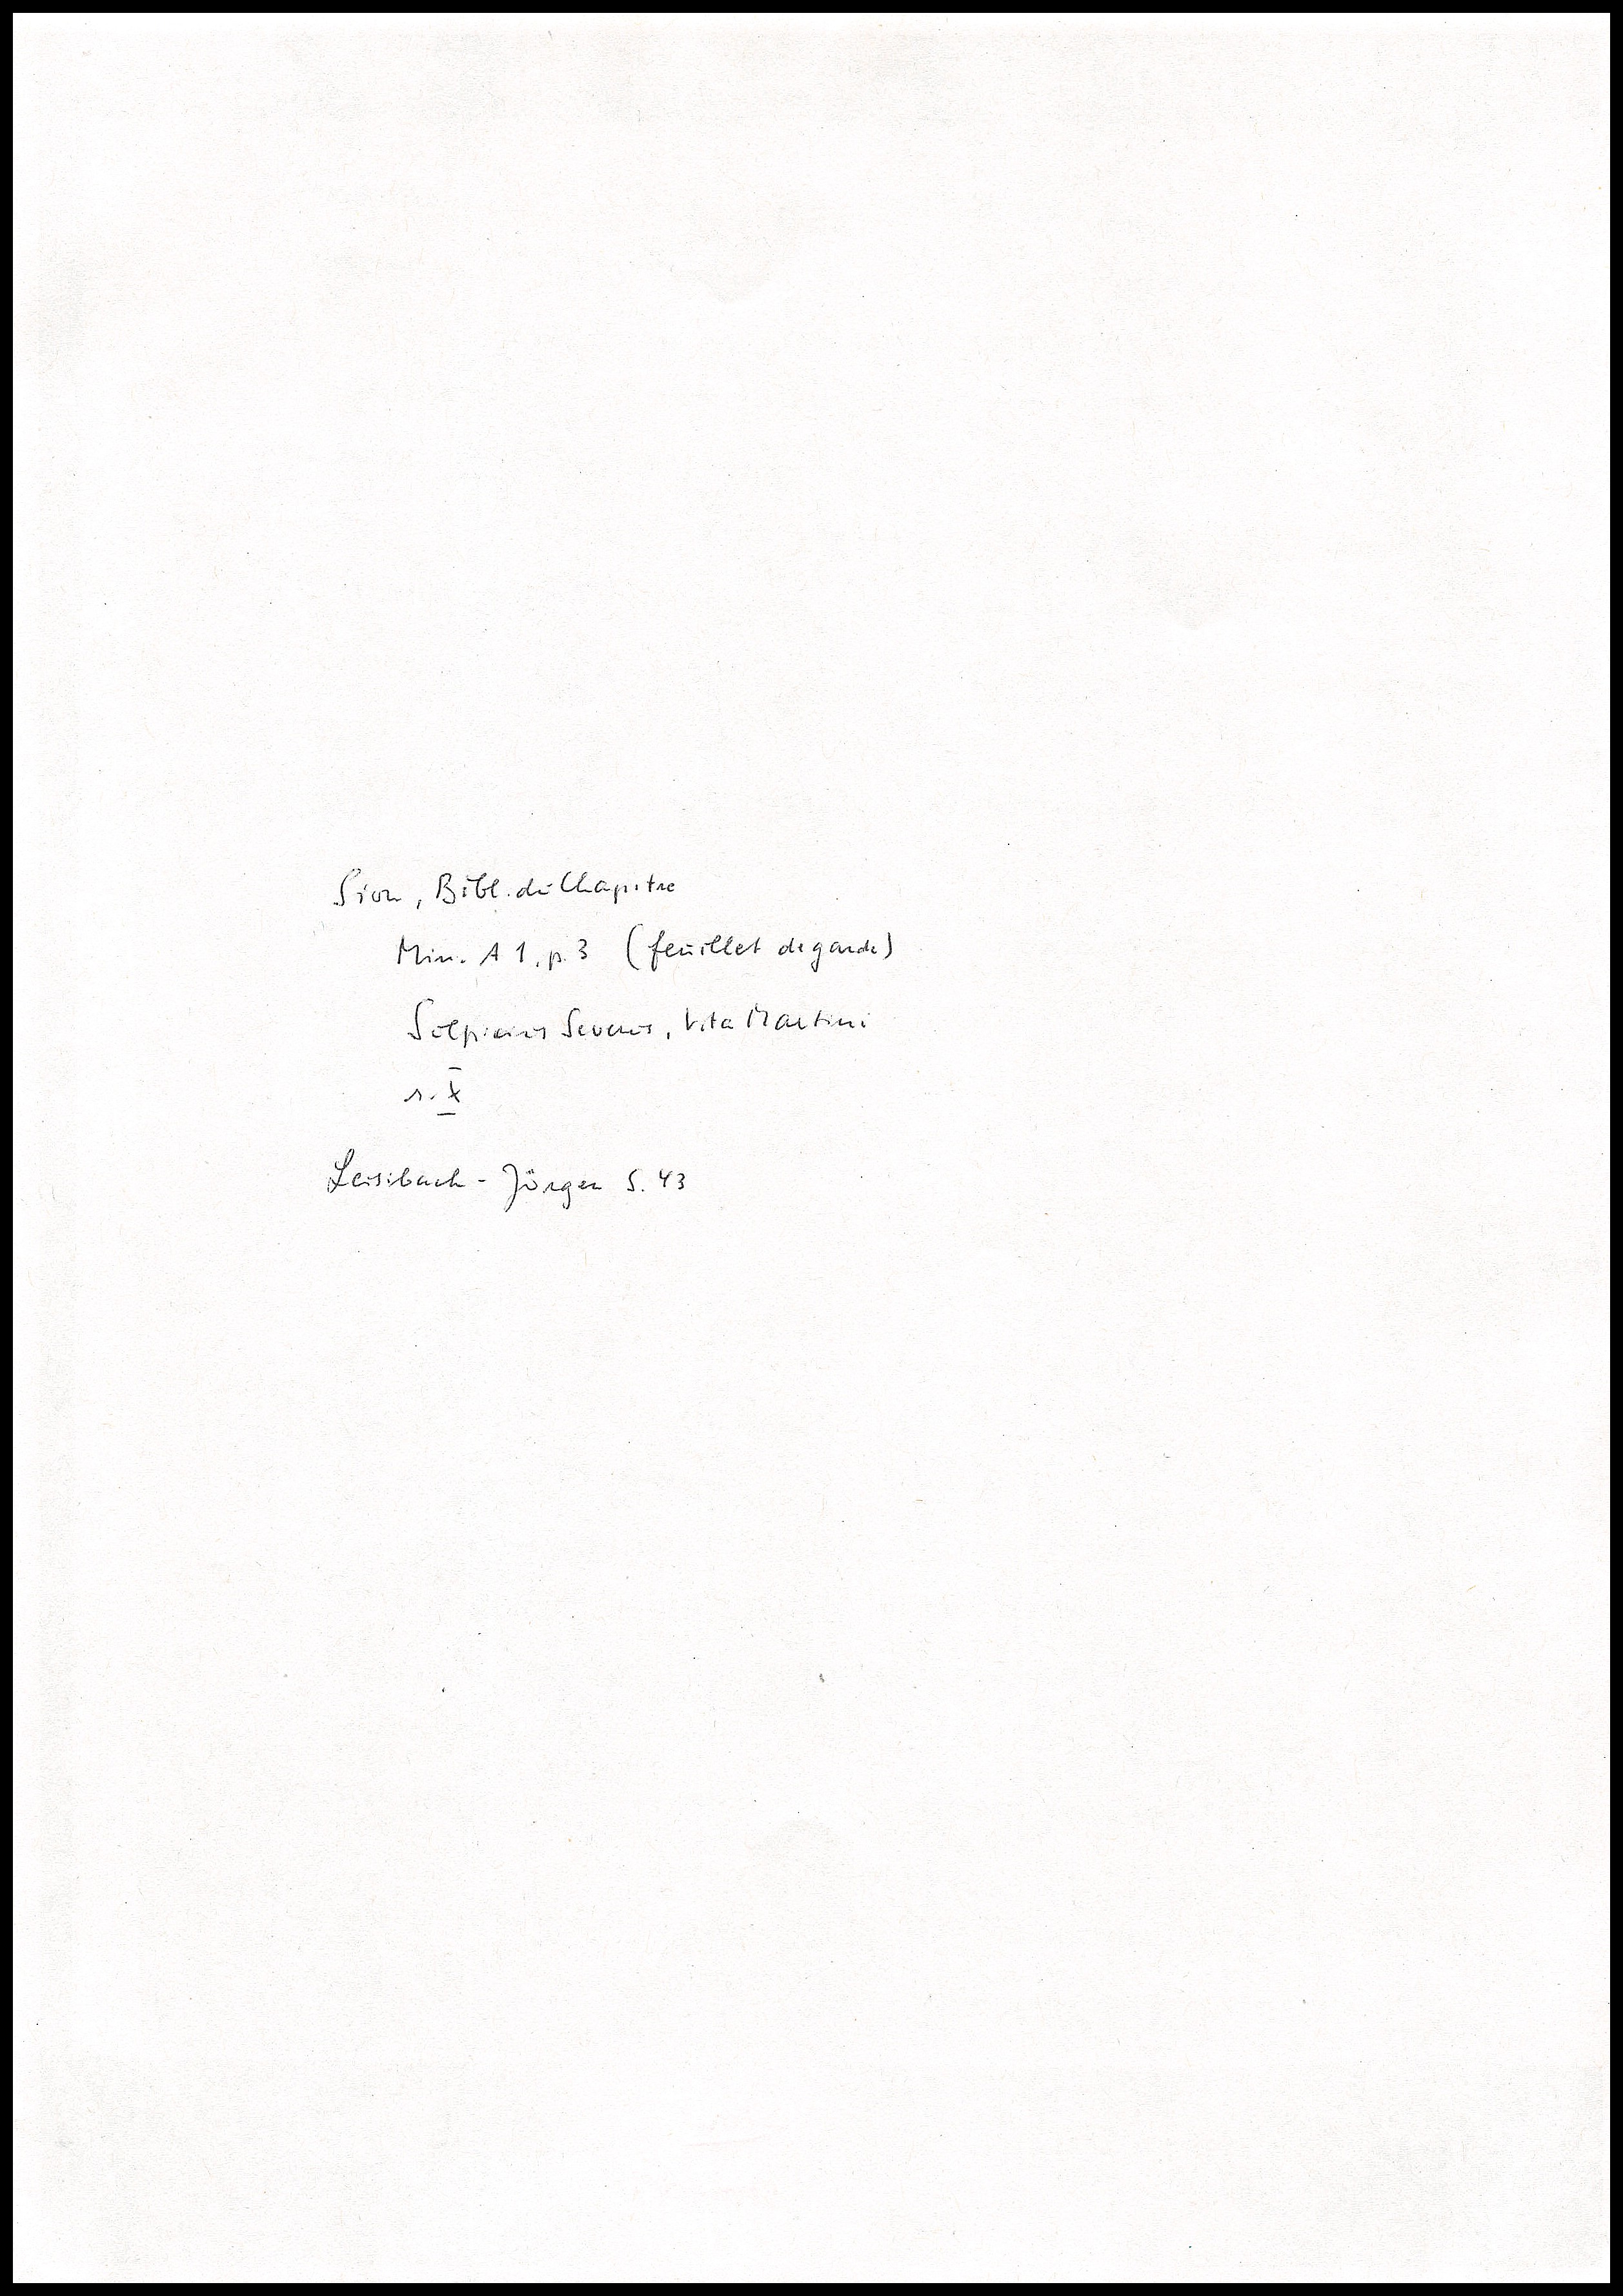 Sion, Bibl. du Chapitre
Min. A 1, p. 3 (feuillet de garde)
Sulpicius Severus, Vita Martini
s. X
Leisibach - Jörger S. 43